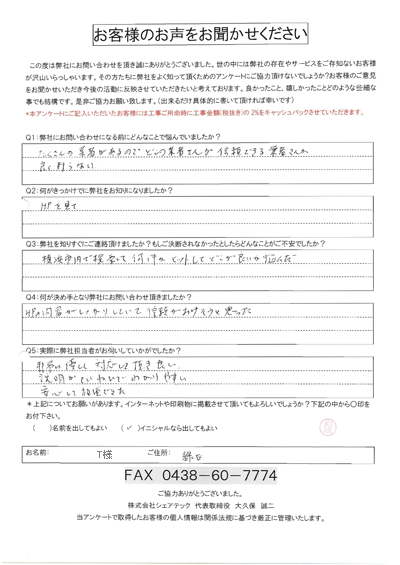 お客様のお声をお聞かせください
この度は弊社にお問い合わせを頂き誠にありがとうございました。世の中には弊社の存在やサービスをご存知ないお客様
が沢山いらっしゃいます。その方たちに弊社をよく知って頂くためのアンケートにご協力頂けないでしょうか?お客様のご意見
をお聞かせいただき今後の活動に反映させていただきたいと考えております。良かったこと、嬉しかったことどのような些細な
事でも結構です。是非ご協力お願い致します。(出来るだけ具体的に書いて頂ければ幸いです)
*本アンケートにご記入いただいたお客様には工事ご用命時に工事金額(税抜き)の 2%をキャッシュバックさせていただきます。
Q1:弊社にお問い合わせになる前にどんなことで悩んでいましたか?
たくさんの業者があるのでどの業者さんが信頼できる業者さんか
良く判らない
Q2:何がきっかけでに弊社をお知りになりましたか?
HPを見て
Q3:弊社を知りすぐにご連絡頂けましたか?もしご決断されなかったとしたらどんなことがご不安でしたか?
横浜市内で検索して何件かヒットしてどこが良いか悩んだ
Q4:何が決め手となり弊社にお問い合わせ頂きましたか?
HPの内容がしっかりしていて信頼がおけそうと思った
Q5:実際に弊社担当者がお伺いしていかがでしたか?
非常に優しく対応して頂き良い
説明がていねいでわかりやすい
安心して
*上記についてお願いがあります。インターネットや印刷物に掲載させて頂いてもよろしいでしょうか?下記の中から○印を
お付下さい。
( )名前を出してもよい (✓)イニシャルなら出してもよい
お名前: T様 ご住所: 緑区
FAX 0438-60-7774
ご協力ありがとうございました。
株式会社シェアテック 代表取締役 大久保 誠二
当アンケートで取得したお客様の個人情報は関係法規に基づき厳正に管理いたします。